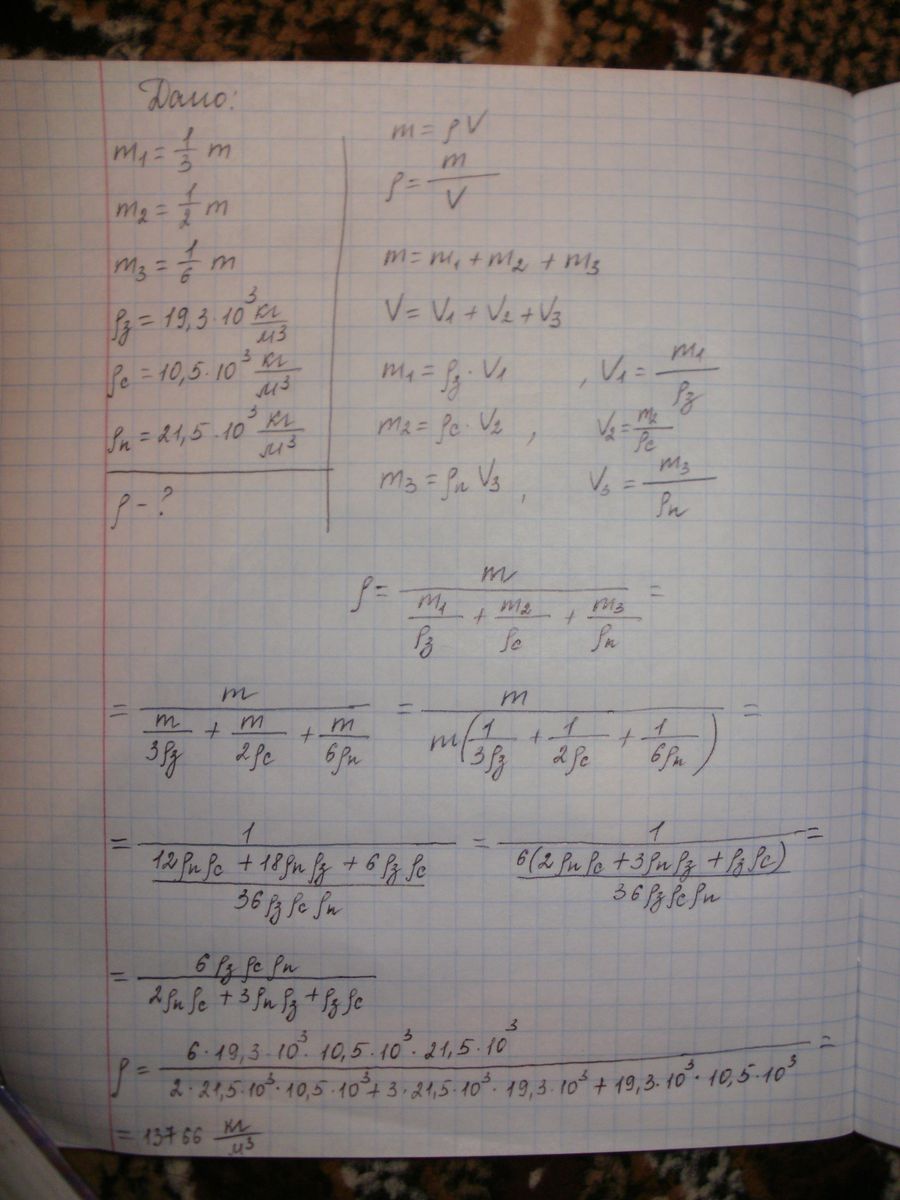 Дано:
m₁ = 1/3 m
m₂ = 1/2 m
m₃ = 1/6 m
ρз = 19,3·10³ кг/м³
ρс = 10,5·10³ кг/м³
ρп = 21,5·10³ кг/м³
ρ - ?
m = ρV
ρ = m/V
m = m₁ + m₂ + m₃
V = V₁ + V₂ + V₃
m₁ = ρз · V₁ , V₁ = m₁/ρз
m₂ = ρс · V₂ , V₂ = m₂/ρс
m₃ = ρп V₃ , V₃ = m₃/ρп
ρ = m/(m₁/ρз + m₂/ρс + m₃/ρп) =
= m/(m/3ρз + m/2ρс + m/6ρп) = m/(m(1/3ρз + 1/2ρс + 1/6ρп)) =
= 1/((12ρпρс + 18ρпρз + 6ρзρс)/36ρзρсρп) = 1/(6(2ρпρс + 3ρпρз + ρзρс)/36ρзρсρп) =
= 6ρзρсρп/(2ρпρс + 3ρпρз + ρзρс)
ρ = (6·19,3·10³·10,5·10³·21,5·10³)/(2·21,5·10³·10,5·10³ + 3·21,5·10³·19,3·10³ + 19,3·10³·10,5·10³) =
= 13766 кг/м³